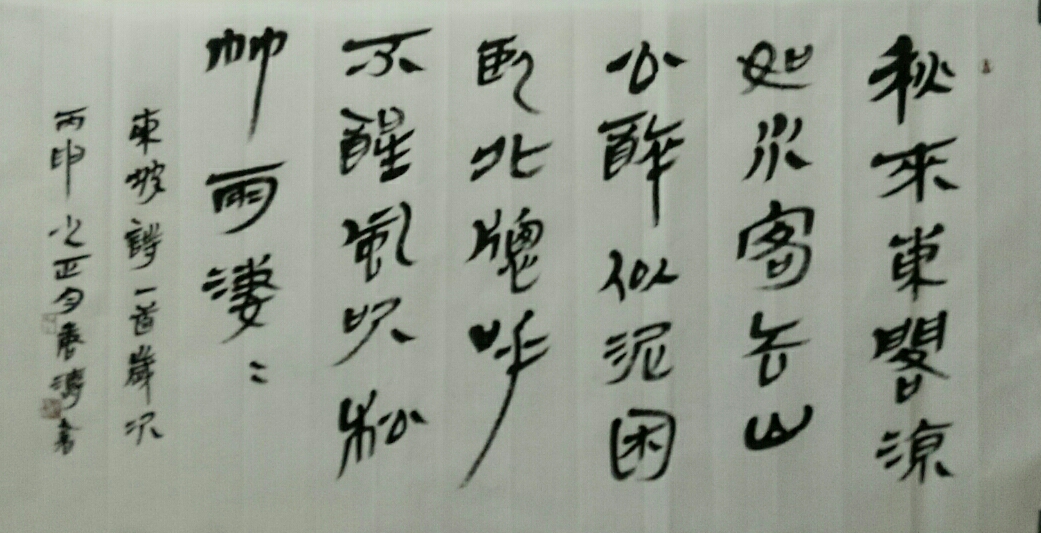 秋來東閣涼
如水客去山
公醉似泥困
臥北牕呼
不醒風吹松
竹雨淒〻
東坡詩一首歲次
丙申之正月濤書